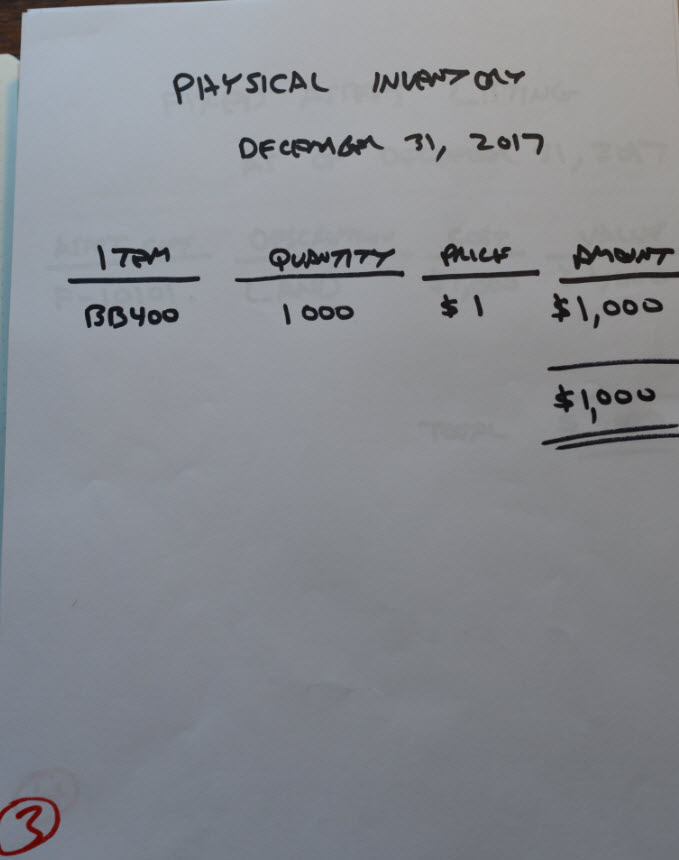 PHYSICAL INVENTORY
DECEMBER 31, 2017
ITEM QUANTITY PRICE AMOUNT
BB400 1000 $1 $1,000
$1,000
3